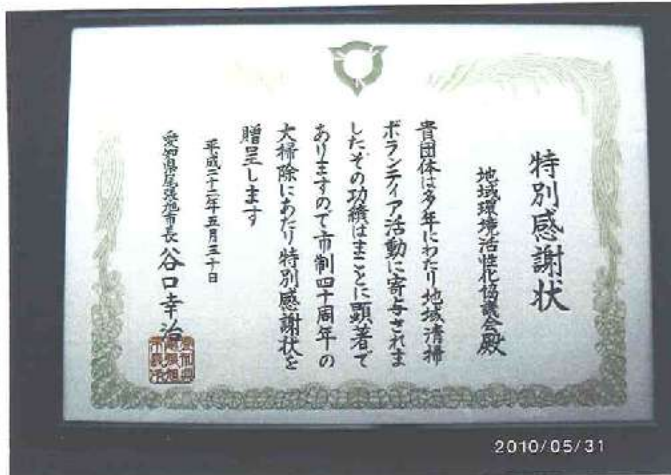 特別感謝状
地域環境活性化協議会殿
貴団体は多年にわたり地域清掃
ボランティア活動に寄与されま
したその功績はまことに顕著で
ありますので市制四十周年の
大掃除にあたり特別感謝状を
贈呈します
平成二十二年五月三十日
愛知県尾張旭市長 谷口幸治
2010/05/31